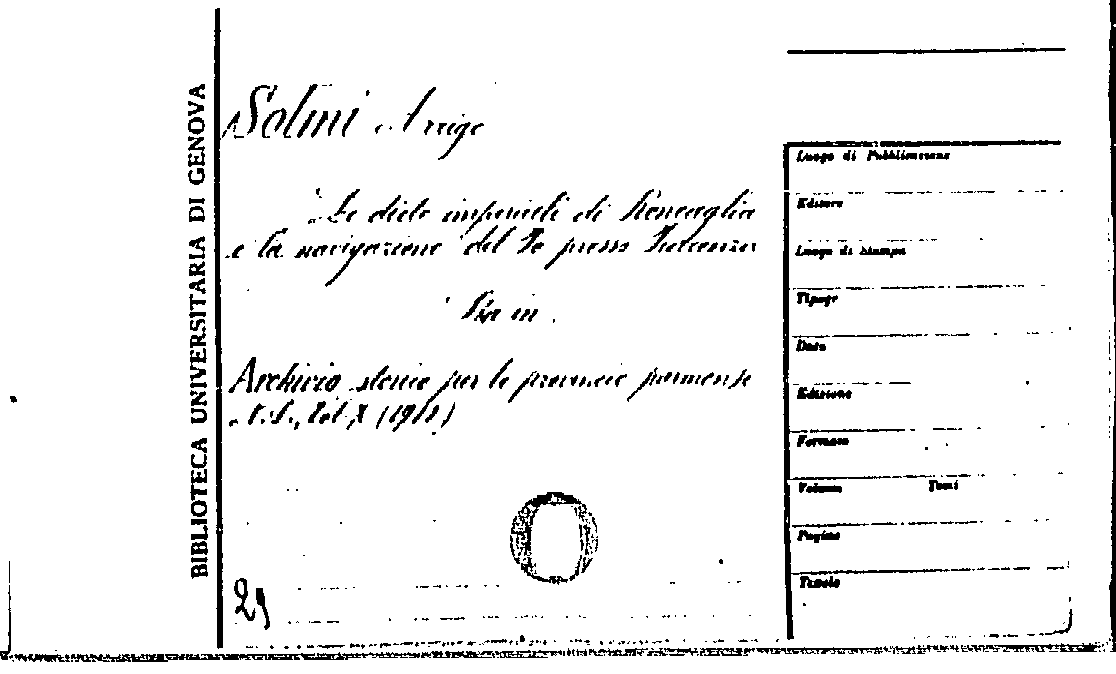 BIBLIOTECA UNIVERSITARIA DI GENOVA
Solmi Arrigo
Le diete imperiali di Roncaglia
e la navigazione del Po presso Piacenza
Sta in
Archivio storico per le provincie parmensi
N. S., Vol. X (1911)
29
Luogo di Pubblicazione
Editore
Luogo di Stampa
Tipogr
Data
Edizione
Formato
Volume Tomi
Pagine
Titolo